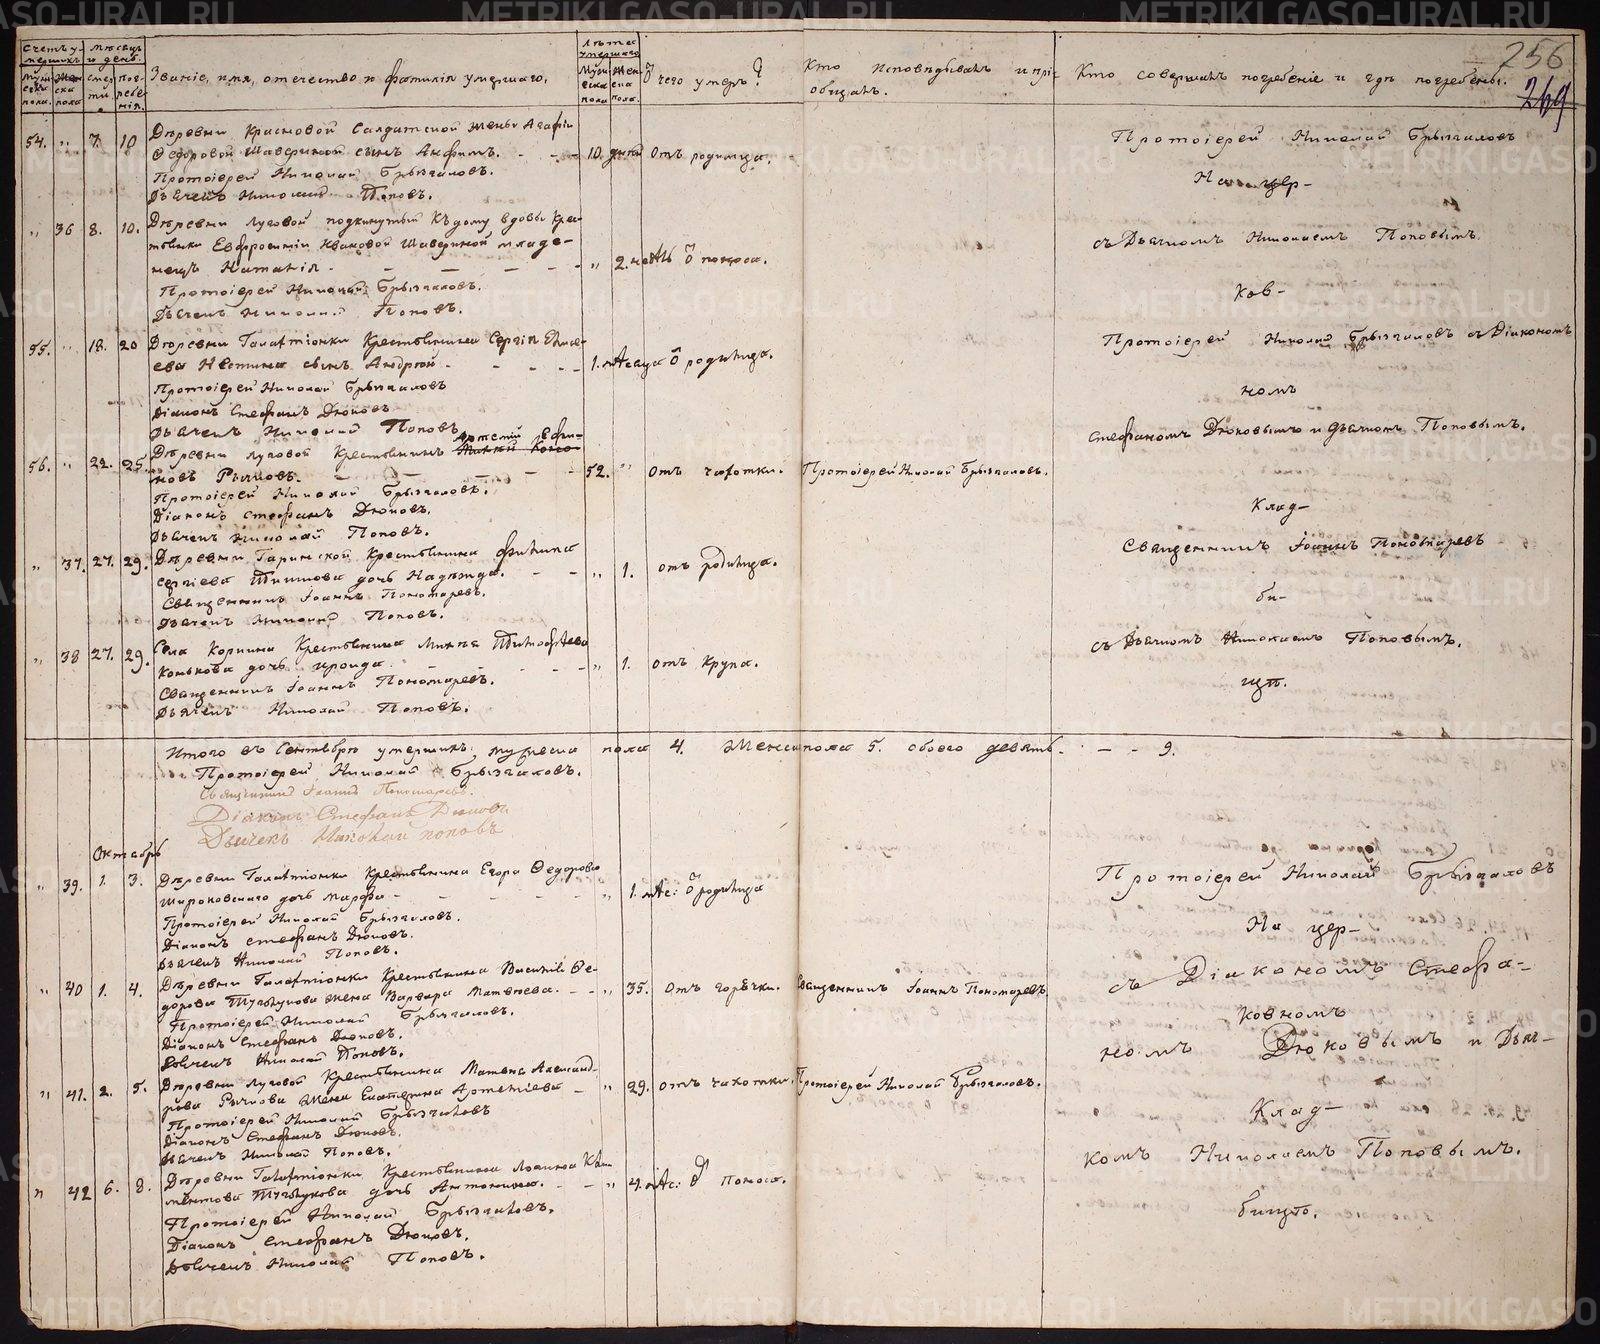 METRIKI.GASO-URAL.RU
256
269
Счетъ умершихъ
Мужеска пола.
Женска пола
Мѣсяцъ и день.
смерти.
погребенія.
Званіе, имя, отечество и фамилія умершаго.
Лѣта умершаго
Мужеска пола
Женска пола.
Отъ чего умеръ?
Кто исповѣдывалъ и прі-
общалъ.
Кто совершалъ погребеніе и гдѣ погребены.
54. " 7. 10
Деревни Красновой Салдатской жены Агафіи
Ѳедоровой Шавериной сынъ Анфимъ. - - -
10. дней
Отъ родимца.
Протоіерей Николай Брызгаловъ.
Дьячекъ Николай Поповъ.
Протоіерей Николай Брызгаловъ
На цер-
" 36 8. 10.
Деревни Луговой подкинутый къ дому вдовы Крес-
тьянки Евфросиніи Ивановой Шавериной младе-
нецъ Наталія - - - - -
" 2. нед.
поноса.
Протоіерей Николай Брызгаловъ.
Дьячекъ Николай Поповъ.
съ Дьячкомъ Николаемъ Поповымъ.
ков-
55. " 18. 20
Деревни Галактіонки Крестьянина Сергія Елисе-
ева сынъ Андрей - - - -
1. мѣсяца
родимца.
Протоіерей Николай Брызгаловъ
Діаконъ Стефанъ Дюковъ
Дьячекъ Николай Поповъ
Протоіерей Николай Брызгаловъ съ Діакономъ
номъ
Стефаномъ Дюковымъ и Дьячкомъ Поповымъ.
56. " 22. 25.
Деревни Луговой Крестьянинъ Артемій Ефи-
мовъ Рычковъ. - - - -
52. "
отъ чахотки.
Протоіерей Николай Брызгаловъ.
Протоіерей Николай Брызгаловъ.
Діаконъ Стефанъ Дюковъ.
Дьячекъ Николай Поповъ.
Клад-
" 37. 27. 29.
Деревни Гаринской Крестьянина Филипа
Сергіева дочь Надежда. - -
" 1.
отъ родимца.
Священникъ Іоаннъ Пономаревъ.
Дьячекъ Николай Поповъ.
Священникъ Іоаннъ Пономаревъ
би-
" 38 27. 29.
Села Коркина Крестьянина Тимофѣева
Конькова дочь Ироида. - - - -
" 1.
отъ крупа.
Священникъ Іоаннъ Пономаревъ.
Дьячекъ Николай Поповъ.
съ Дьячкомъ Николаемъ Поповымъ.
щѣ.
Итого въ Сентябрѣ умершихъ: мужеска пола 4. женска пола 5. обоего девять - - - 9.
Протоіерей Николай Брызгаловъ.
Священникъ Іоаннъ Пономаревъ.
Діаконъ Стефанъ Дюковъ
Дьячекъ Николай Поповъ
Октябрь
" 39. 1. 3.
Деревни Галактіонки Крестьянина Егора Ѳедорова
Широковскаго дочь Марфа - - - - -
" 1. мѣс:
родимца
Протоіерей Николай Брызгаловъ.
Діаконъ Стефанъ Дюковъ.
Дьячекъ Николай Поповъ.
Протоіерей Николай Брызгаловъ
На цер-
" 40 1. 4.
Деревни Галактіонки Крестьянина Василія Ѳе-
дорова жена Варвара Матвѣева. - -
" 35.
Отъ горячки.
Священникъ Іоаннъ Пономаревъ
Протоіерей Николай Брызгаловъ.
Діаконъ Стефанъ Дюковъ.
Дьячекъ Николай Поповъ.
съ Діакономъ Стефа-
ковномъ
номъ Дюковымъ и Дьяч-
" 41. 2. 5.
Деревни Луговой Крестьянина Матвѣя Александ-
рова Рычкова жена Екатерина Артеміева -
" 29.
отъ чахотки.
Протоіерей Николай Брызгаловъ.
Протоіерей Николай Брызгаловъ
Діаконъ Стефанъ Дюковъ.
Дьячекъ Николай Поповъ.
Клад-
комъ Николаемъ Поповымъ.
" 42 6. 8.
Деревни Галактіонки Крестьянина Логина Кли-
ментова дочь Антонина. - -
" 4. мѣс:
поноса.
Протоіерей Николай Брызгаловъ.
Діаконъ Стефанъ Дюковъ.
Дьячекъ Николай Поповъ.
бищѣ.